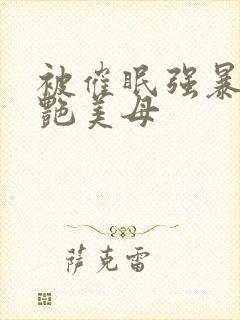 被催眠强暴
艳美母
萨克雷